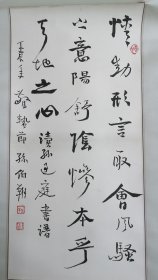 情動形言取會風騷
之意陽舒陰慘本乎
天地之心 讀孫過庭書譜
丁亥年 藝節 孫伯翔